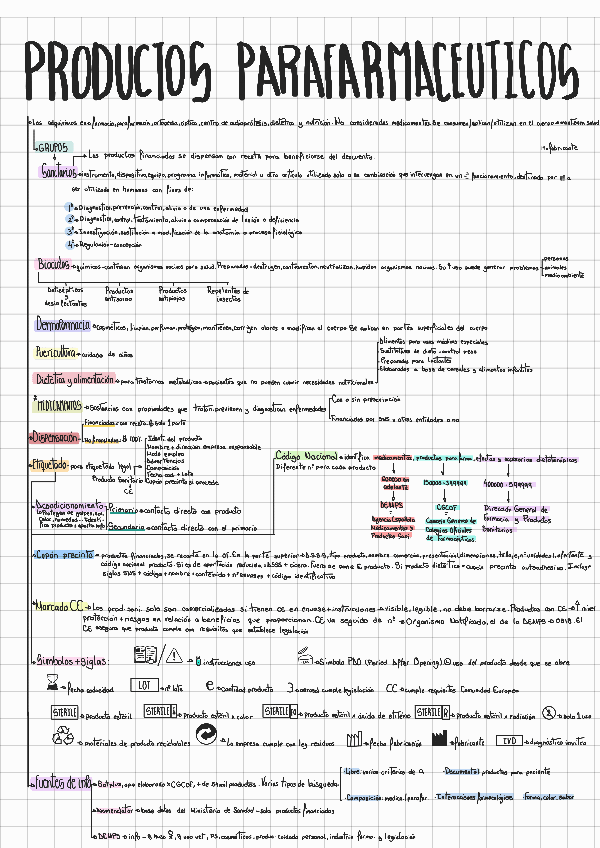 PRODUCTOS PARAFARMACEUTICOS
Los adquirimos en farmacia, parafarmacia, ortopedia, óptica, centro de audioprótesis, dietética y nutrición. No considerados medicamentos. Se consumen/aplican/utilizan en el cuerpo
GRUPOS
fabricante
Los productos financiados se dispensan con receta para beneficiarse del descuento
Sanitarios instrumento, dispositivo, equipo, programa informático, material u otro artículo utilizado solo o en combinación que intervengan en un funcionamiento, destinado por
ser utilizado en humanos con fines de:
1º Diagnóstico, prevención, control, alivio o de una enfermedad
2º Diagnóstico, control, tratamiento, alivio o compensación de lesión o deficiencia
3º Investigación, sustitución o modificación de la anatomía o proceso fisiológico
4º Regulación concepción
Biocidas químicos contienen organismos nocivos para salud. Preparados destruyen, contrarresten, neutralizan, impiden organismos nocivos. Su uso puede generar problemas
personas
animales
medio ambiente
Antisépticos y desinfectantes
Productos antisarna
Productos antipiojos
Repelentes de insectos
Dermofarmacia cosméticos, limpian, perfuman, protegen, mantienen, corrigen olores o modifican el cuerpo. Se aplican en partes superficiales del cuerpo
Puericultura cuidado de niños
Dietética y alimentación para trastornos metabólicos pacientes que no pueden cubrir necesidades nutricionales
Alimentos para usos médicos especiales
Sustitutivos de dieta control peso
Preparados para lactantes
Elaborados a base de cereales y alimentos infantiles
MEDICAMENTOS Sustancias con propiedades que tratan, previenen y diagnostican enfermedades
Con o sin prescripción
Financiados por SNS u otras entidades o no
DISPENSACIÓN
Financiados con receta
No financiados 100%
Etiquetado para etiquetado legal
Ident. del producto
Nombre y dirección empresa responsable
Modo empleo
Advertencias
Composición
Fecha cad. + Lote
Producto Sanitario CE
Cupón precinto si procede
Código Nacional identifica medicamentos, productos parafarm, efectos y accesorios dietoterápicos
Diferente nº para cada producto
600000 en adelante
150000-399999
400000-599999
AEMPS
Agencia Española Medicamentos y Productos Sani
CGCOF
Consejo General de Colegios Oficiales de Farmacéuticos
Dirección General de Farmacia y Productos Sanitarios
Acondicionamiento
Primario contacto directo con producto
Secundario contacto directo con el primario
Cupón precinto productos financiados, se recorta en la of. En la parte superior A.S.S.S, tipo producto, nombre comercial, presentación, dimensiones, talla, nº unidades, nº ofertante y
código nacional producto. Si es de aportación reducida, ASSS + cícero, fuera de esto E producto. Si producto dietético cupón precinto autoadhesivo. Incluye
siglas SNS + código + nombre + contenido + nº envases + código identificativo
Marcado CE Los prod. sani. solo son comercializados si tienen CE en envase + instrucciones visible, legible, no debe borrarse. Productos con CE
protección + riesgos en relación a beneficios que proporcionan. CE va seguido de nº Organismo Notificado, el de la AEMPS 0318. El
CE asegura que producto cumple con requisitos que establece legislación
Símbolos + Siglas:
instrucciones uso
Símbolo PAO (Period After Opening) uso del producto desde que se abre
fecha caducidad
LOT nº lote
e cantidad producto
3 aerosol cumple legislación
CE cumple requisitos Comunidad Europea
STERILE producto estéril
STERILE producto estéril x calor
STERILE EO producto estéril x óxido de etileno
STERILE R producto estéril x radiación
2 solo 1 uso
materiales de producto reciclables
la empresa cumple con ley residuos
fecha fabricación
fabricante
IVD diagnóstico in vitro
Fuentes de info
Botplus, app elaborada x CGCOF, + de 54 mil productos. Varios tipos de búsqueda
Libre: varios criterios de
Documental: productos para paciente
Composición: medica/parafar.
Interacciones farmacológicas
forma, color, sabor
Nomenclátor base datos del Ministerio de Sanidad solo productos financiados
AEMPS info uso, uso vet, PS, cosméticos, produ. cuidado personal, industria farma. y legislación